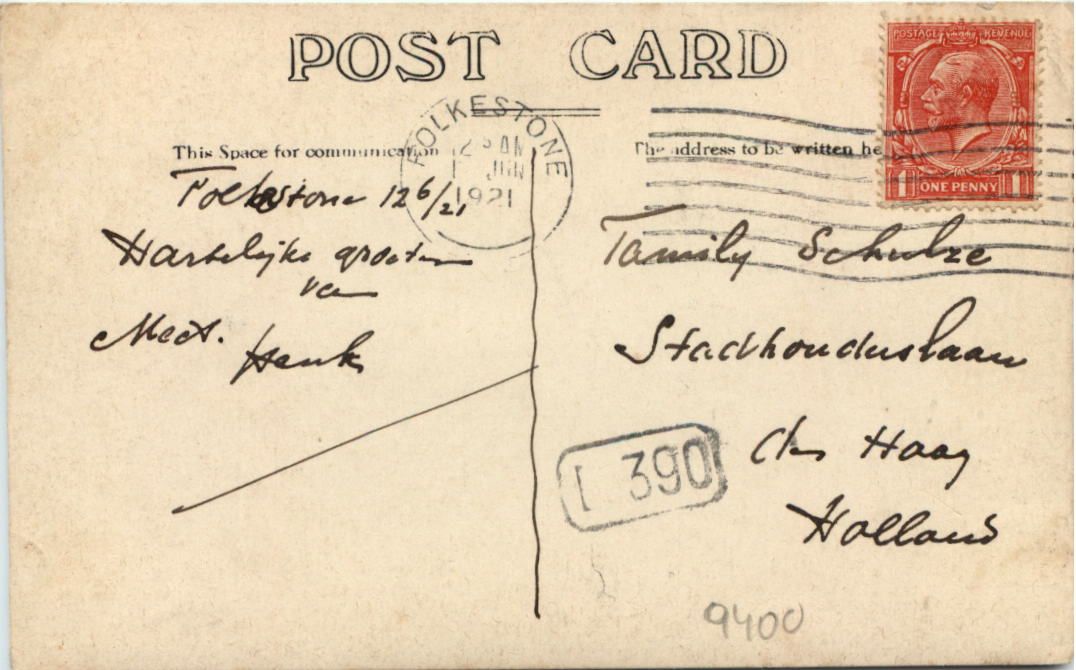 POST CARD
This Space for communication
The address to be written he
FOLKESTONE
12 AM
JUN
1921
POSTAGE REVENUE
1 ONE PENNY 1
Folkstone 12 6/21
Hartelijke groeten
van
Henk
Family Schulze
Stadhouderslaan
den Haag
Holland
L 390
9400